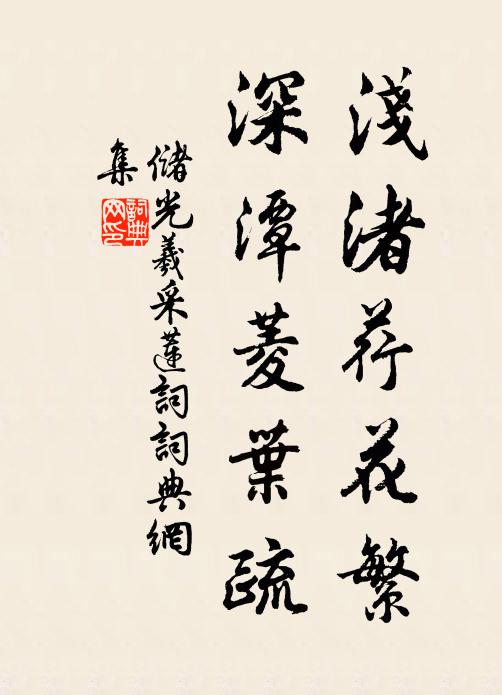 淺渚荇花繁
深潭菱葉疏
儲光羲采蓮詞詞典網
集
詞典
网印